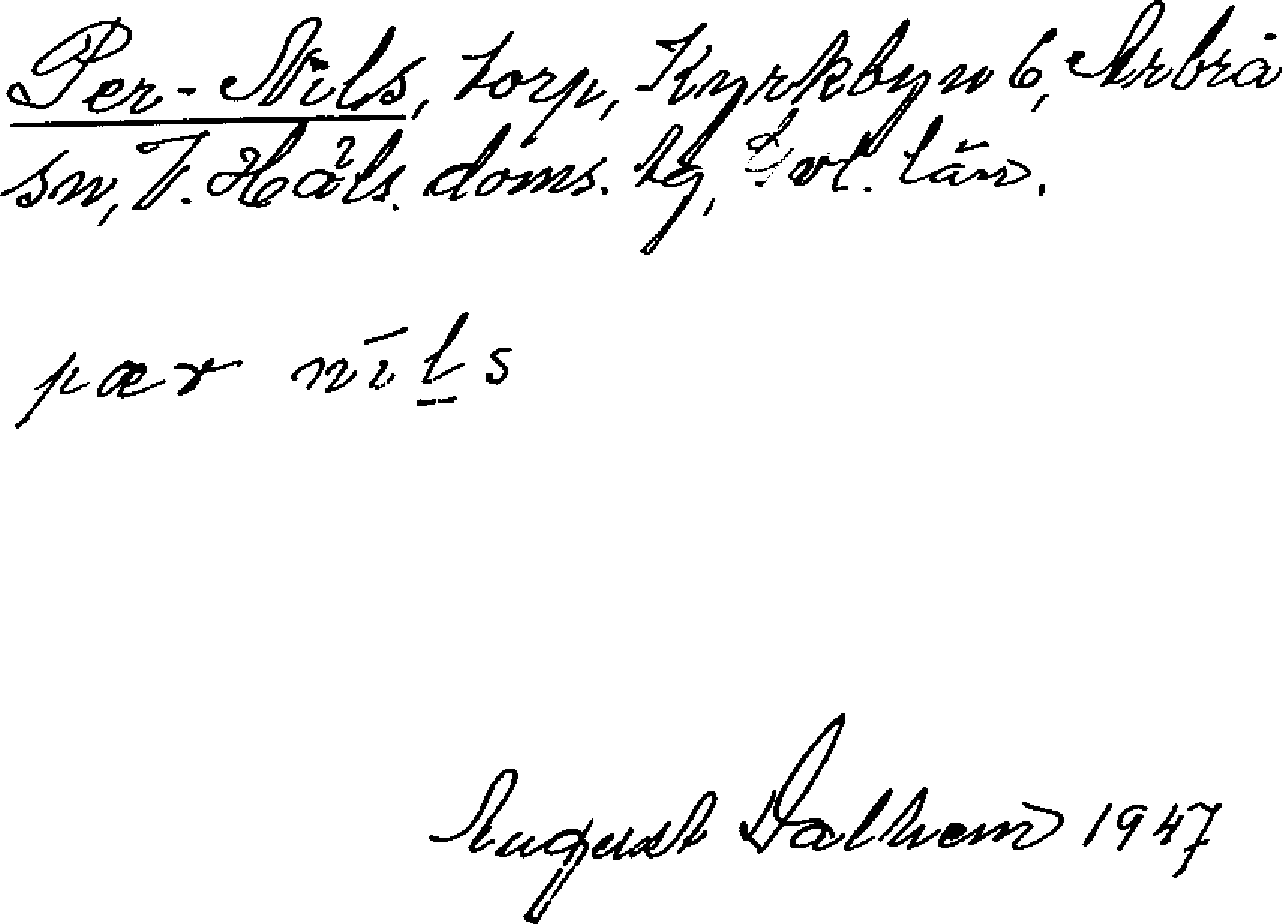 Per-Nils, torp, Kyrkbyn 6, Arbrå
sn, V. Häls. doms. hg, Gvl. län.
pær nīl̲s
August Dalhem 1947